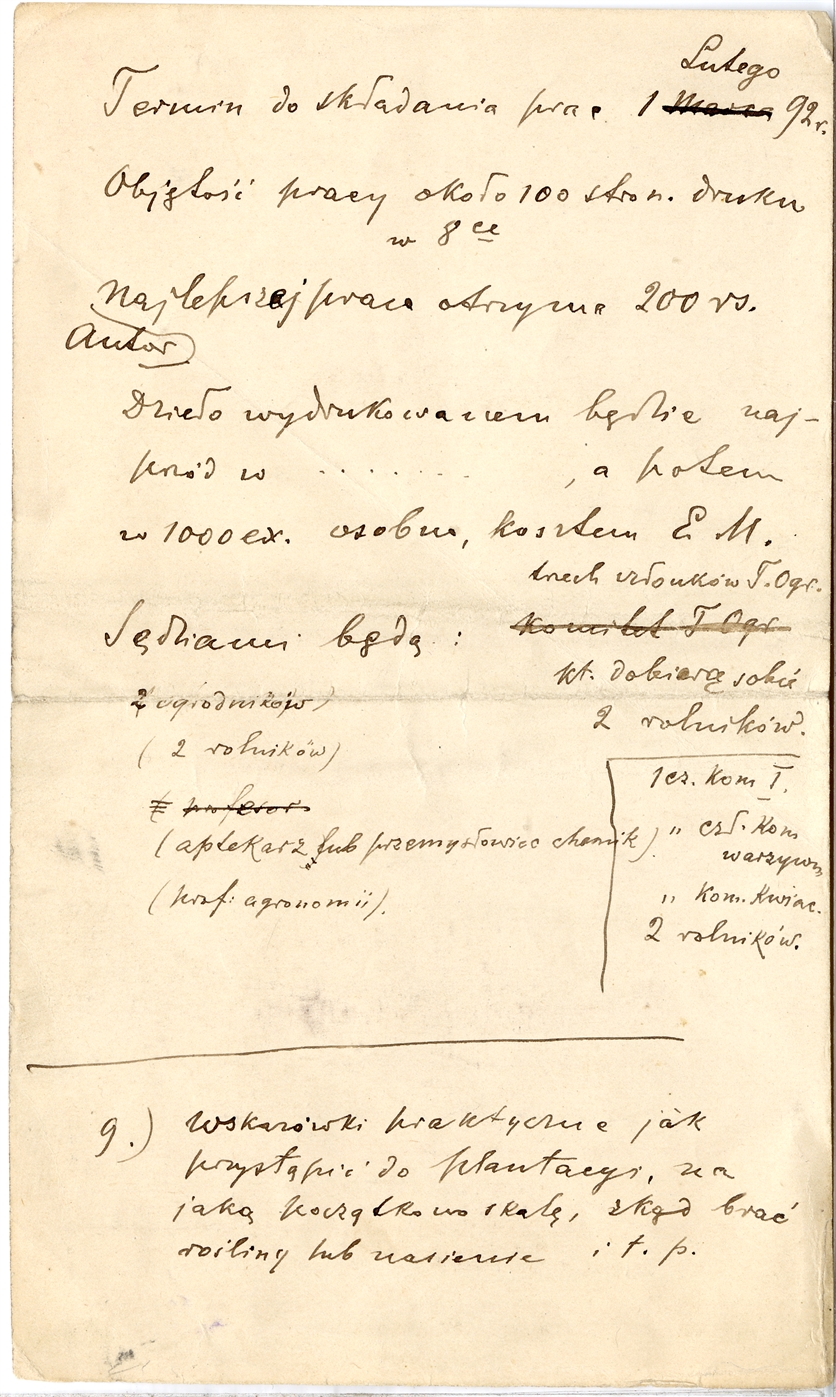 Lutego
Termin do składania prac 1 Marca 92 r.
Objętość pracy około 100 stron. druku
w 8ce
Najlepszej praca otrzyma 200 rs.
Autor
Dzieło wydrukowanem będzie naj-
przód w . . . . . . . , a potem
w 1000 ex. osobno, kosztem E. M.
trzech członków T. Ogr.
Sędziami będą : komitet T Ogr
kt. dobiorą sobie
2 ogrodników)
2 rolników.
( 2 rolników)
1 cz. Kom I.
profesor
(aptekarz lub przemysłowiec chemik) " czł. Kom
warzywn
(prof: agronomii).
" Kom. Kwiac.
2 rolników.
9.) wskazówki praktyczne jak
przystąpić do plantacyi, na
jaką początkowo skalę, zkąd brać
rośliny lub nasienie i t. p.